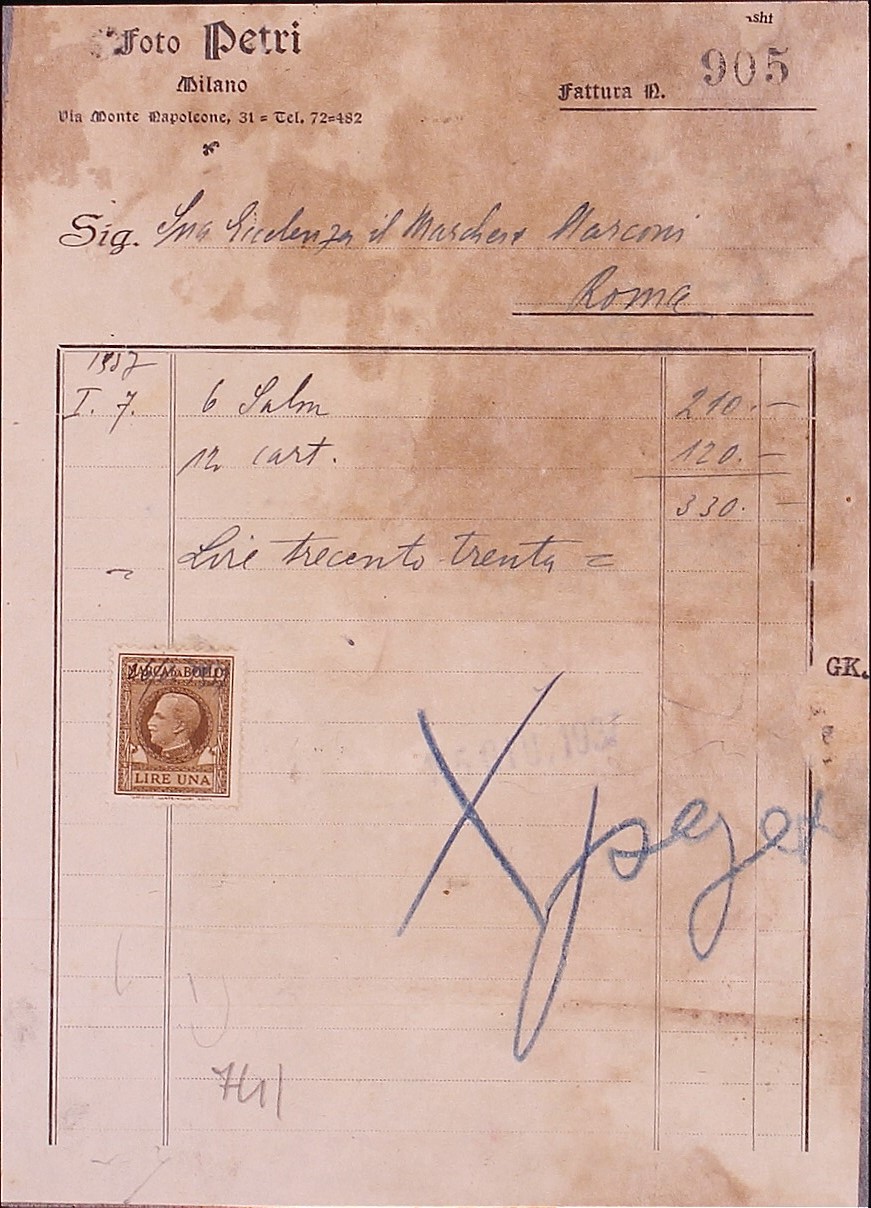 Foto Petri
Milano
Via Monte Napoleone, 31 = Tel. 72=482
Fattura N. 905
Sig. Sua Eccelenza il Marchese Marconi
Roma
1937
I. 7. 6 Salm 210.—
12 cart. 120.—
330. —
Lire trecento trenta =
MARCA DA BOLLO
LIRE UNA
GK.